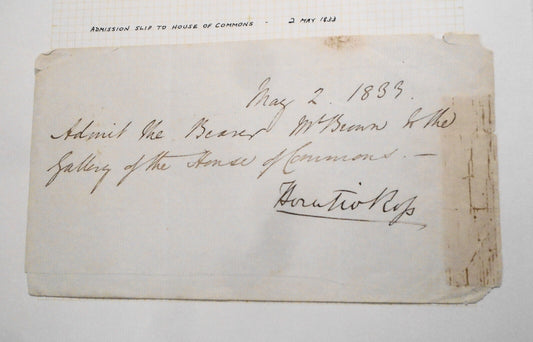 ADMISSION SLIP TO HOUSE OF COMMONS - 2 MAY 1833
May 2. 1833.
Admit the Bearer Mr Brown to the
Gallery of the House of Commons. —
Horatio Ross